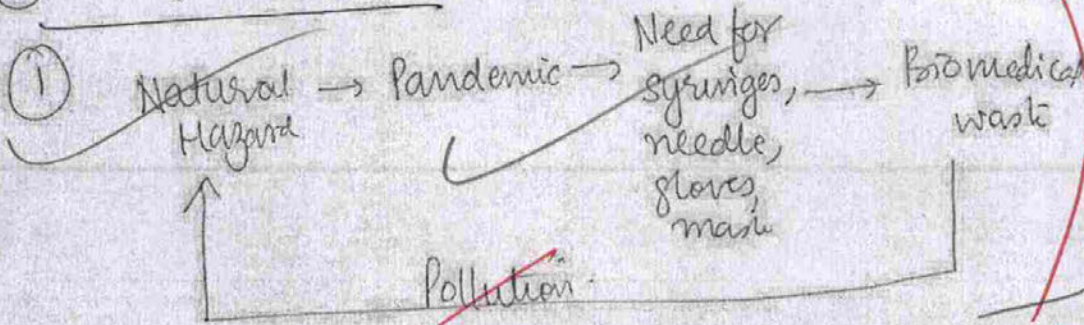 ① Natural Hazard → Pandemic → Need for syringes, needle, gloves, mask → Biomedical waste
Pollution